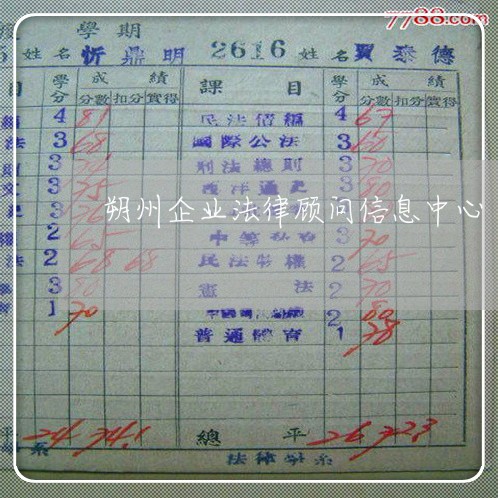 7788.com
學期
姓名 忻鼎明 2616 姓名 賈泰德
目 學分 成績 課目 學分 成績
分數 扣分 實得 分數 扣分 實得
4 81 民法債編 4 67
法 3 68 國際公法 3 60
則 3 刑法總則 3 70
3 75 西洋通史 3 80
3 76 3
朔州企业法律顾问信息中心
2 65 3 70
法 2 68 68 民法物權 2 65
3 80 憲法 2 70
1 70 2 80
普通體育 1 78
平 24 74.1 總平 26 72.3
系 法律學系